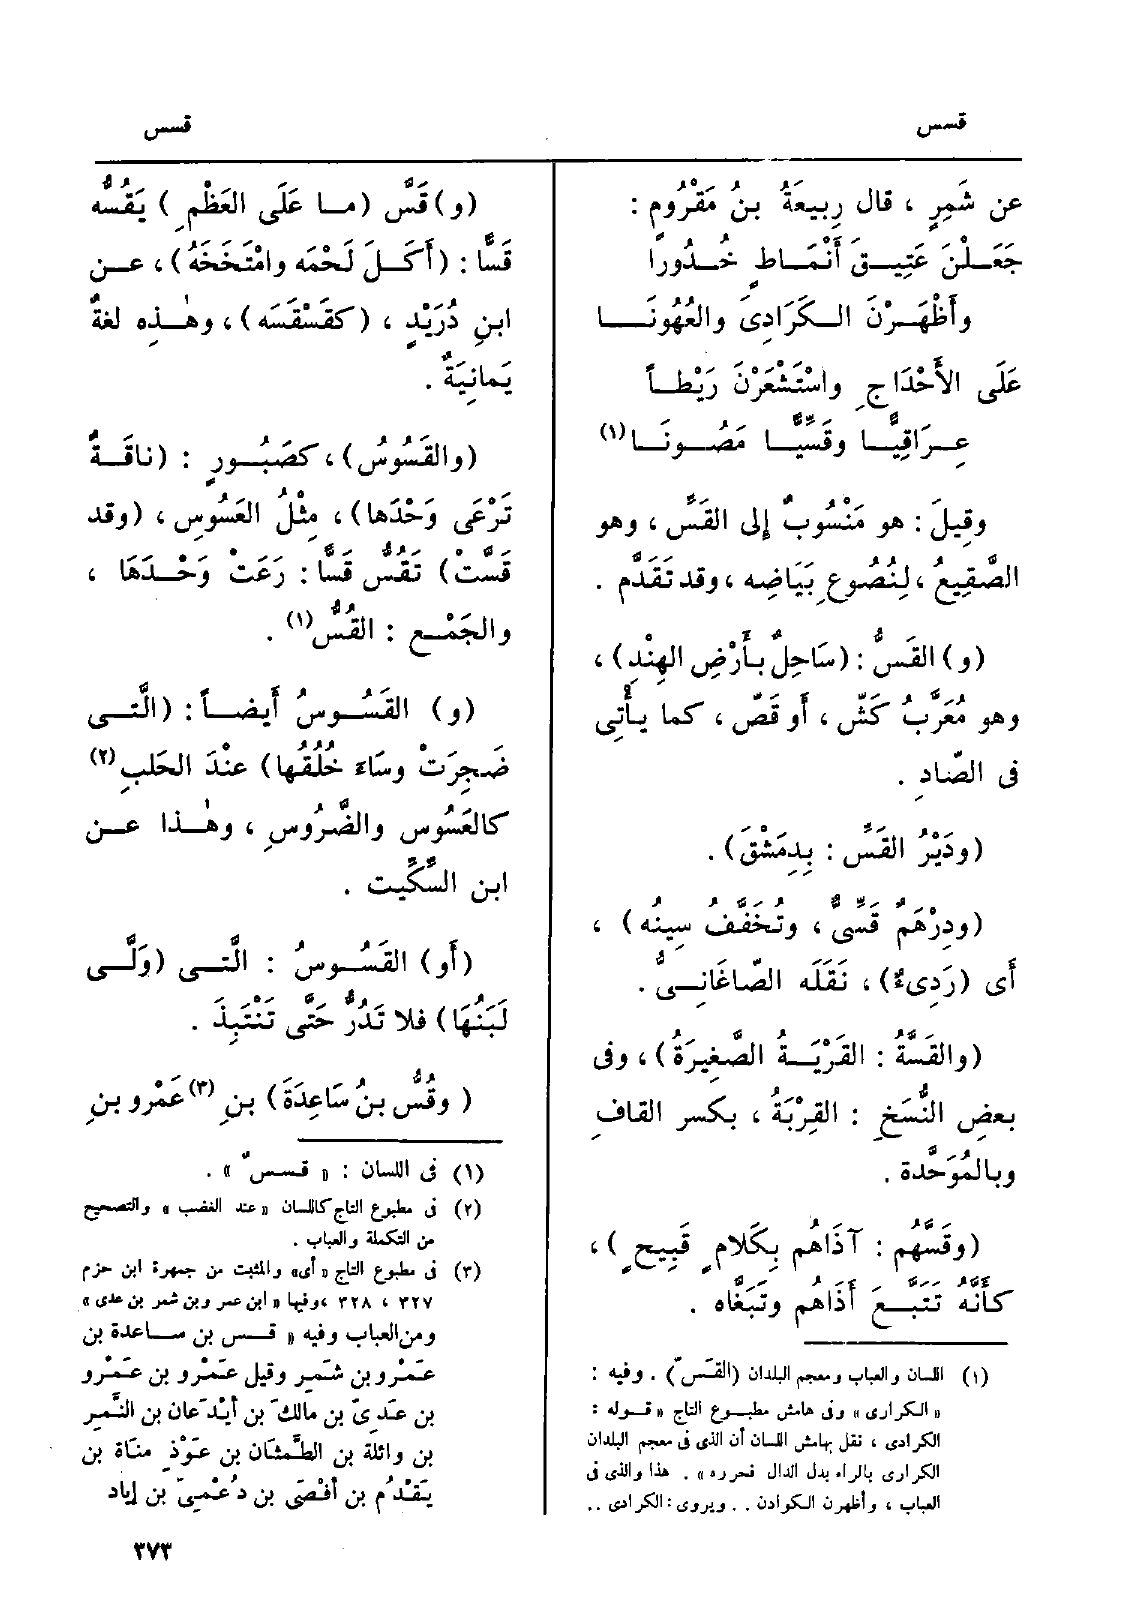 قسس
قسس
عن شَمِرٍ ، قال رِبِيعَةُ بنُ مَقْرُومٍ :
جَعَلْنَ عَتِيقَ أَنْمَاطٍ خُدُورًا
وأَظْهَرْنَ الكَرَادِىَ والعُهُونَا
عَلَى الأَحْدَاجِ واسْتَشْعَرْنَ رَيْطاً
عِرَاقِيًّا وقَسِّيًّا مَصُونَا(١)
وقِيلَ : هو مَنْسُوبٌ إِلى القَسِّ ، وهو
الصَّقِيعُ ، لِنُصُوعِ بَيَاضِه ، وقد تَقَدَّم .
(و) القَسُّ : (سَاحِلٌ بأَرْضِ الهِنْدِ) ،
وهو مُعَرَّبُ كَشّ ، أَو قَصّ ، كما يأْتِى
فى الصّادِ .
(ودَيْرُ القَسِّ : بِدِمَشْقَ) .
(ودِرْهَمٌ قَسِّىٌّ ، وتُخَفَّفُ سِينُه) ،
أَى (رَدِىءٌ) ، نَقَلَه الصّاغَانِىُّ .
(والقَسَّةُ : القَرْيَةُ الصَّغِيرَةُ) ، وفى
بعضِ النُّسَخِ : القِرْبَةُ ، بكسر القافِ
وبالمُوَحَّدة .
(وقَسَّهُم : آذَاهُم بِكَلامٍ قَبِيحٍ) ،
كأَنَّهُ تَتَبَّعَ أَذَاهُم وتَبَغَّاه .
(١) اللسان والعباب ومعجم البلدان (القَسّ) . وفيه :
« الكرارى » وفى هامش مطبوع التاج « قوله :
الكرادى ، نقل بهامش اللسان أن الذى فى معجم البلدان
الكرارى بالراء بدل الدال فحرره » . هذا والذى فى
العباب ، وأظهرن الكوادن . . ويروى : الكرادى ..
(و) قَسَّ (ما عَلَى العَظْمِ) يَقُسُّه
قَسًّا : (أَكَلَ لَحْمَه وامْتَخَخَهُ) ، عن
ابنِ دُرَيْدٍ ، (كقَسْقَسَه) ، وهٰذِه لغةٌ
يَمانِيَةٌ .
(والقَسُوسُ) ، كصَبُورٍ : (ناقَةٌ
تَرْعَى وَحْدَها) ، مِثْلُ العَسُوسِ ، (وقد
قَسَّتْ) تَقُسُّ قَسًّا : رَعَتْ وَحْدَهَا ،
والجَمْع : القُسُّ(١) .
(و) القَسُوسُ أَيضاً : (الَّتِى
ضَجِرَتْ وسَاءَ خُلُقُها) عنْدَ الحَلبِ(٢)
كالعَسُوسِ والضَّرُوسِ ، وهٰذا عن
ابن السِّكِّيت .
(أَو) القَسُوسُ : الَّتِى (وَلَّى
لَبَنُهَا) فلا تَدُرُّ حَتَّى تَنْتَبِذَ .
( وقُسُّ بنُ سَاعِدَةَ) بنِ (٣)عَمْرِو بنِ
(١) فى اللسان : « قسسٌ » .
(٢) فى مطبوع التاج كاللسان « عند الغضب » والتصحيح
من التكملة والعباب .
(٣) فى مطبوع التاج « أى » والمثبت من جمهرة ابن حزم
٣٢٧ ، ٣٢٨ ، وفيها « ابن عمر وبن شمر بن عدى »
ومن العباب وفيه « قس بن ساعدة بن
عَمْرو بن شَمِر وقيل عَمْرو بن عَمْرو
بن عَدِىّ بن مالك بن أيْدَعان بن النَّمِر
بن وائلة بن الطَّمَثان بن عَوْذِ مناة بن
يَقْدُم بن أفْصَى بن دُعْمِىّ بن إياد
٣٧٣